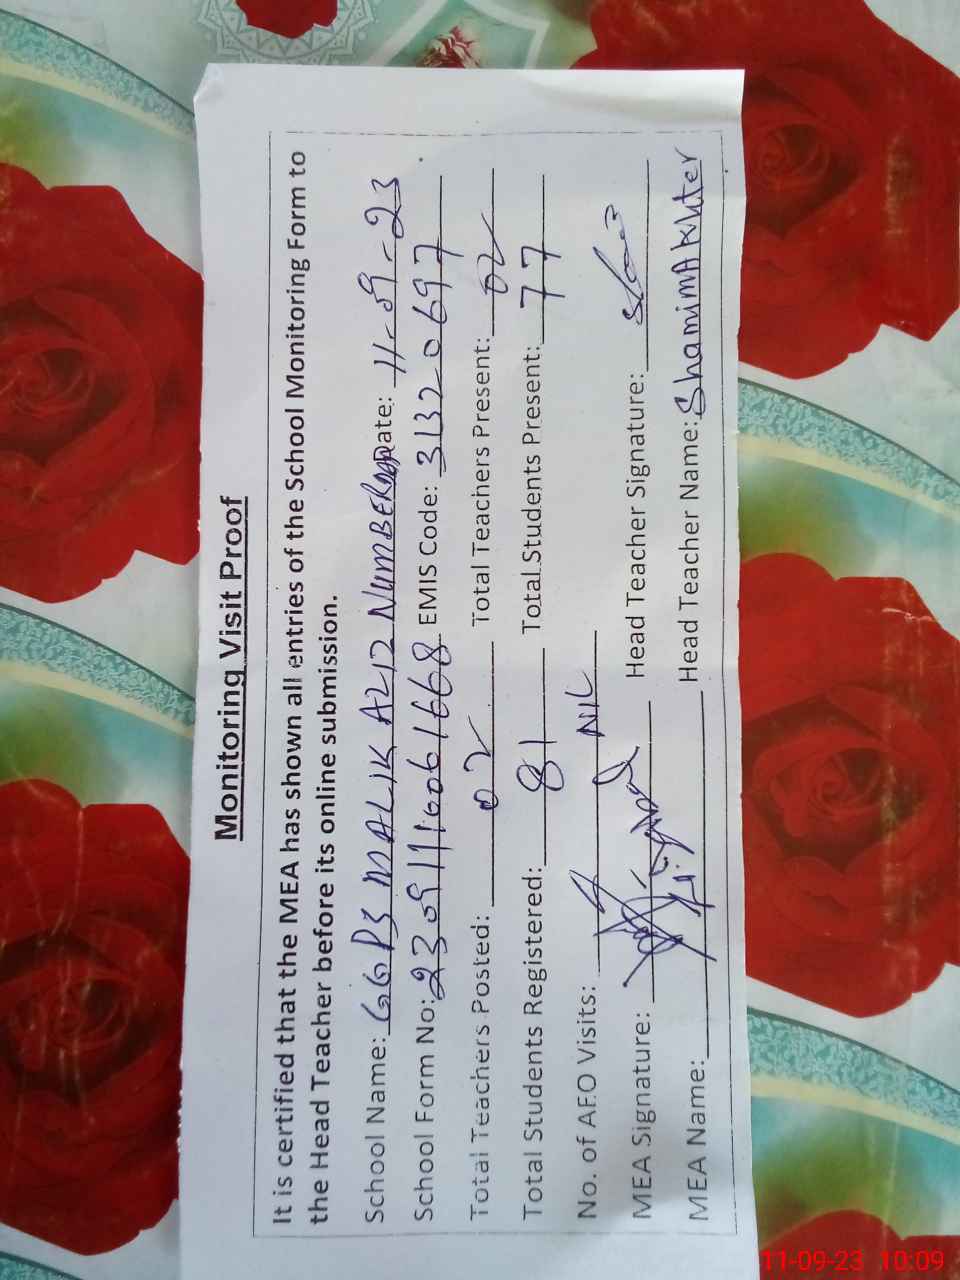 Monitoring Visit Proof
It is certified that the MEA has shown all entries of the School Monitoring Form to
the Head Teacher before its online submission.
School Name: GGPS MALIK AZIZ NUMBERDAR Date: 11-09-23
School Form No: 23091110061668 EMIS Code: 31320697
Total Teachers Posted: 02 Total Teachers Present: 02
Total Students Registered: 81 Total Students Present: 77
No. of AEO Visits: NIL
MEA Signature: Head Teacher Signature:
MEA Name: Head Teacher Name: Shamim Akhter
11-09-23 10:09